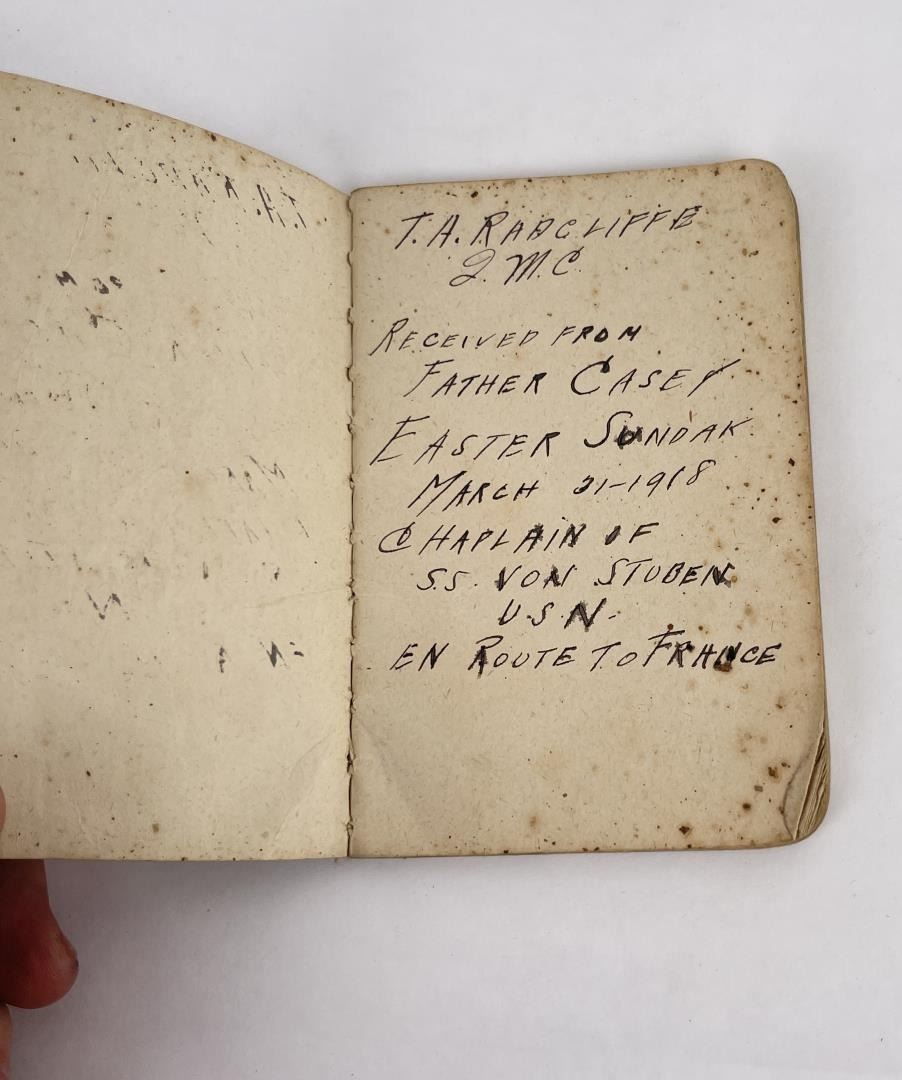 T.A. RADCLIFFE
Q.M.C.
RECEIVED FROM
FATHER CASEY
EASTER SUNDAY
MARCH 31-1918
CHAPLAIN OF
S.S. VON STUBEN
U.S.N.
EN ROUTE TO FRANCE